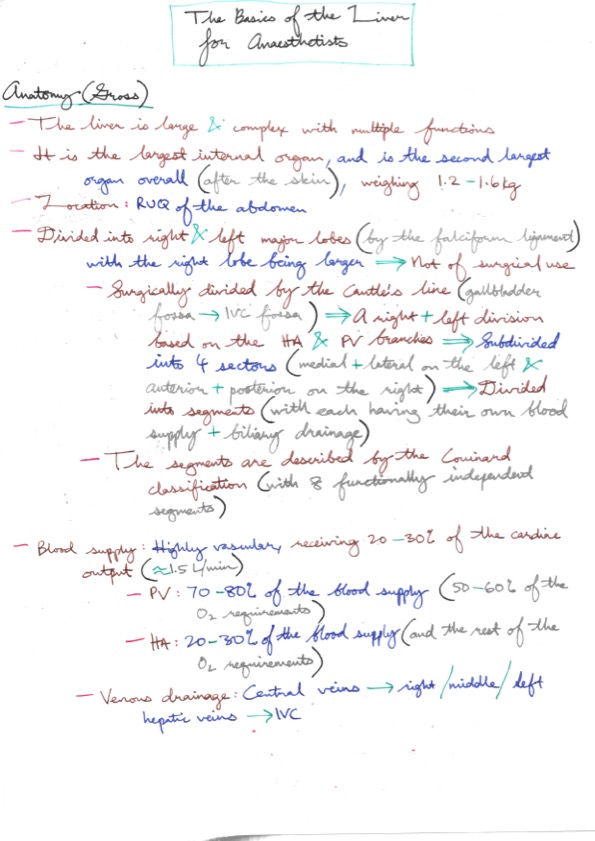 The Basics of the Liver
for Anaesthetists
Anatomy (Gross)
– The liver is large & complex with multiple functions
– It is the largest internal organ, and is the second largest
organ overall (after the skin), weighing 1.2 – 1.6 kg
– Location : RUQ of the abdomen
– Divided into right & left major lobes (by the falciform ligament)
with the right lobe being larger ⇒ Not of surgical use
– Surgically divided by the Cantle's line (gallbladder
fossa → IVC fossa) ⇒ A right + left division
based on the HA & PV branches ⇒ Subdivided
into 4 sectors (medial + lateral on the left &
anterior + posterior on the right) ⇒ Divided
into segments (with each having their own blood
supply + biliary drainage)
– The segments are described by the Couinard
classification (with 8 functionally independent
segments)
– Blood supply : Highly vascular, receiving 20 – 30% of the cardiac
output (≈ 1.5 L/min)
– PV : 70 – 80% of the blood supply (50 – 60% of the
O₂ requirements)
– HA : 20 – 30% of the blood supply (and the rest of the
O₂ requirements)
– Venous drainage : Central veins → right / middle / left
hepatic veins → IVC